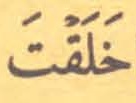 خَلَقۡتَ